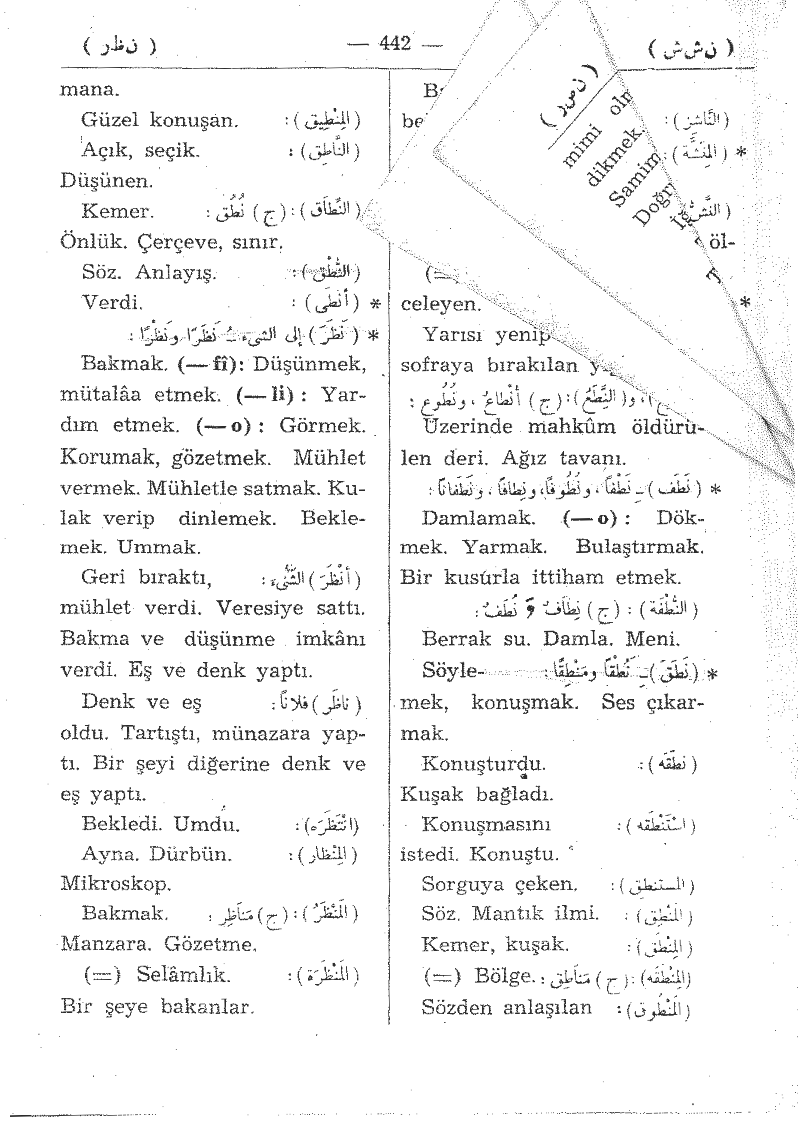 ( نظر ) — 442 — ( نشش )
(النَّاشِز) :
* (المِنَشَّة) :
öl-
(=
celeyen.
Yarısı yenip
sofraya bırakılan
و(النِّطَعُ) : (ج) أَنْطَاعٌ ، ونُطُوع :
Üzerinde mahkûm öldürü-
len deri. Ağız tavanı.
* (نَطَفَ) ـِ نَطْفًا ، ونُطُوفًا، ونِطَافًا ، ونَطَفَانًا :
Damlamak. (—o) : Dök-
mek. Yarmak. Bulaştırmak.
Bir kusûrla ittiham etmek.
(النُّطْفَة) : (ج) نِطَافٌ و نُطَفٌ :
Berrak su. Damla. Meni.
* (نَطَقَ) ـِ نُطْقًا ومَنْطِقًا : Söyle-
mek, konuşmak. Ses çıkar-
mak.
(نَطَّقَه) : Konuşturdu.
Kuşak bağladı.
(اسْتَنْطَقَه) : Konuşmasını
istedi. Konuştu.
(المستنطق) : Sorguya çeken.
(المَنْطِق) : Söz. Mantık ilmi.
(المِنْطَق) : Kemer, kuşak.
(المِنْطَقَة) : (ج) مَنَاطِق : (=) Bölge.
(المَنْطُوق) : Sözden anlaşılan
mana.
(المِنْطِيق) : Güzel konuşan.
(النَّاطِق) : Açık, seçik.
Düşünen.
(النِّطَاق) : (ج) نُطُق : Kemer.
Önlük. Çerçeve, sınır.
(النُّطْق) : Söz. Anlayış.
* (أَنْطَى) : Verdi.
* (نَظَرَ) إلى الشيء ـُ نَظَرًا ونَظْرًا :
Bakmak. (—fî): Düşünmek,
mütalâa etmek. (—li) : Yar-
dım etmek. (—o) : Görmek.
Korumak, gözetmek. Mühlet
vermek. Mühletle satmak. Ku-
lak verip dinlemek. Bekle-
mek. Ummak.
(أَنْظَرَ) الشَّيْء : Geri bıraktı,
mühlet verdi. Veresiye sattı.
Bakma ve düşünme imkânı
verdi. Eş ve denk yaptı.
(ناظَر) فلانًا : Denk ve eş
oldu. Tartıştı, münazara yap-
tı. Bir şeyi diğerine denk ve
eş yaptı.
(انْتَظَرَه) : Bekledi. Umdu.
(المِنْظَار) : Ayna. Dürbün.
Mikroskop.
(المَنْظَرُ) : (ج) مَنَاظِر : Bakmak.
Manzara. Gözetme.
(المَنْظَرَة) : (=) Selâmlık.
Bir şeye bakanlar.
( نصر )
mimi olm
dikmek.
Samim
Doğr